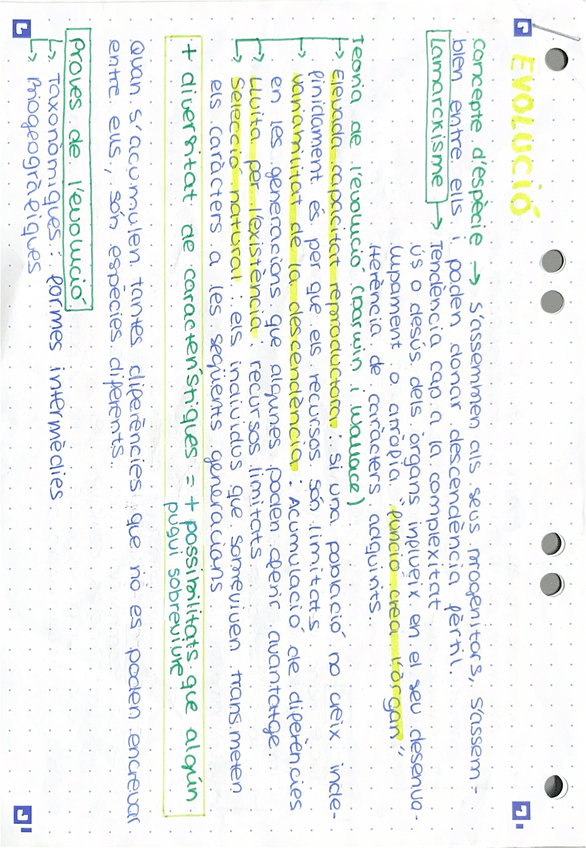 EVOLUCIÓ
Concepte d'espècie → S'assemblen als seus progenitors, s'assem-
blen entre ells i poden donar descendència fèrtil.
Lamarckisme → Tendència cap a la complexitat
Ús o desús dels òrgans influeix en el seu desenvo-
lupament o atròfia. "Funció crea l'òrgan"
Herència de caràcters adquirits.
Teoria de l'evolució (Darwin i Wallace)
→ Elevada capacitat reproductora: si una població no creix inde-
finidament és per que els recursos són limitats
→ Variabilitat de la descendència: Acumulació de diferències
en les generacions que algunes poden oferir avantatge.
→ Lluita per l'existència: recursos limitats
→ Selecció natural: els individus que sobreviuen transmeten
els caràcters a les següents generacions
+ diversitat de característiques = + possibilitats que algún
pugui sobreviure
Quan s'acumulen tantes diferències que no es poden encreuar
entre ells, són espècies diferents
Proves de l'evolució:
→ Taxonòmiques: formes intermèdies
→ Biogeogràfiques